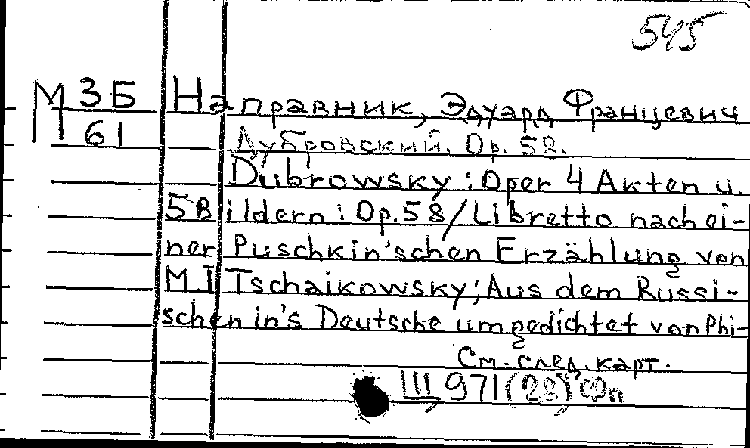 545
М3Б Направник, Эдуард Францевич
П61 Дубровский. Op. 58.
Dubrowsky : Oper 4 Akten u.
5 Bildern : Op. 58 / Libretto nach ei-
ner Puschkin'schen Erzählung von
M I Tschaikowsky; Aus dem Russi-
schen in's Deutsche umgedichtet von Phi-
См. след. карт.
Ш, 971(28)